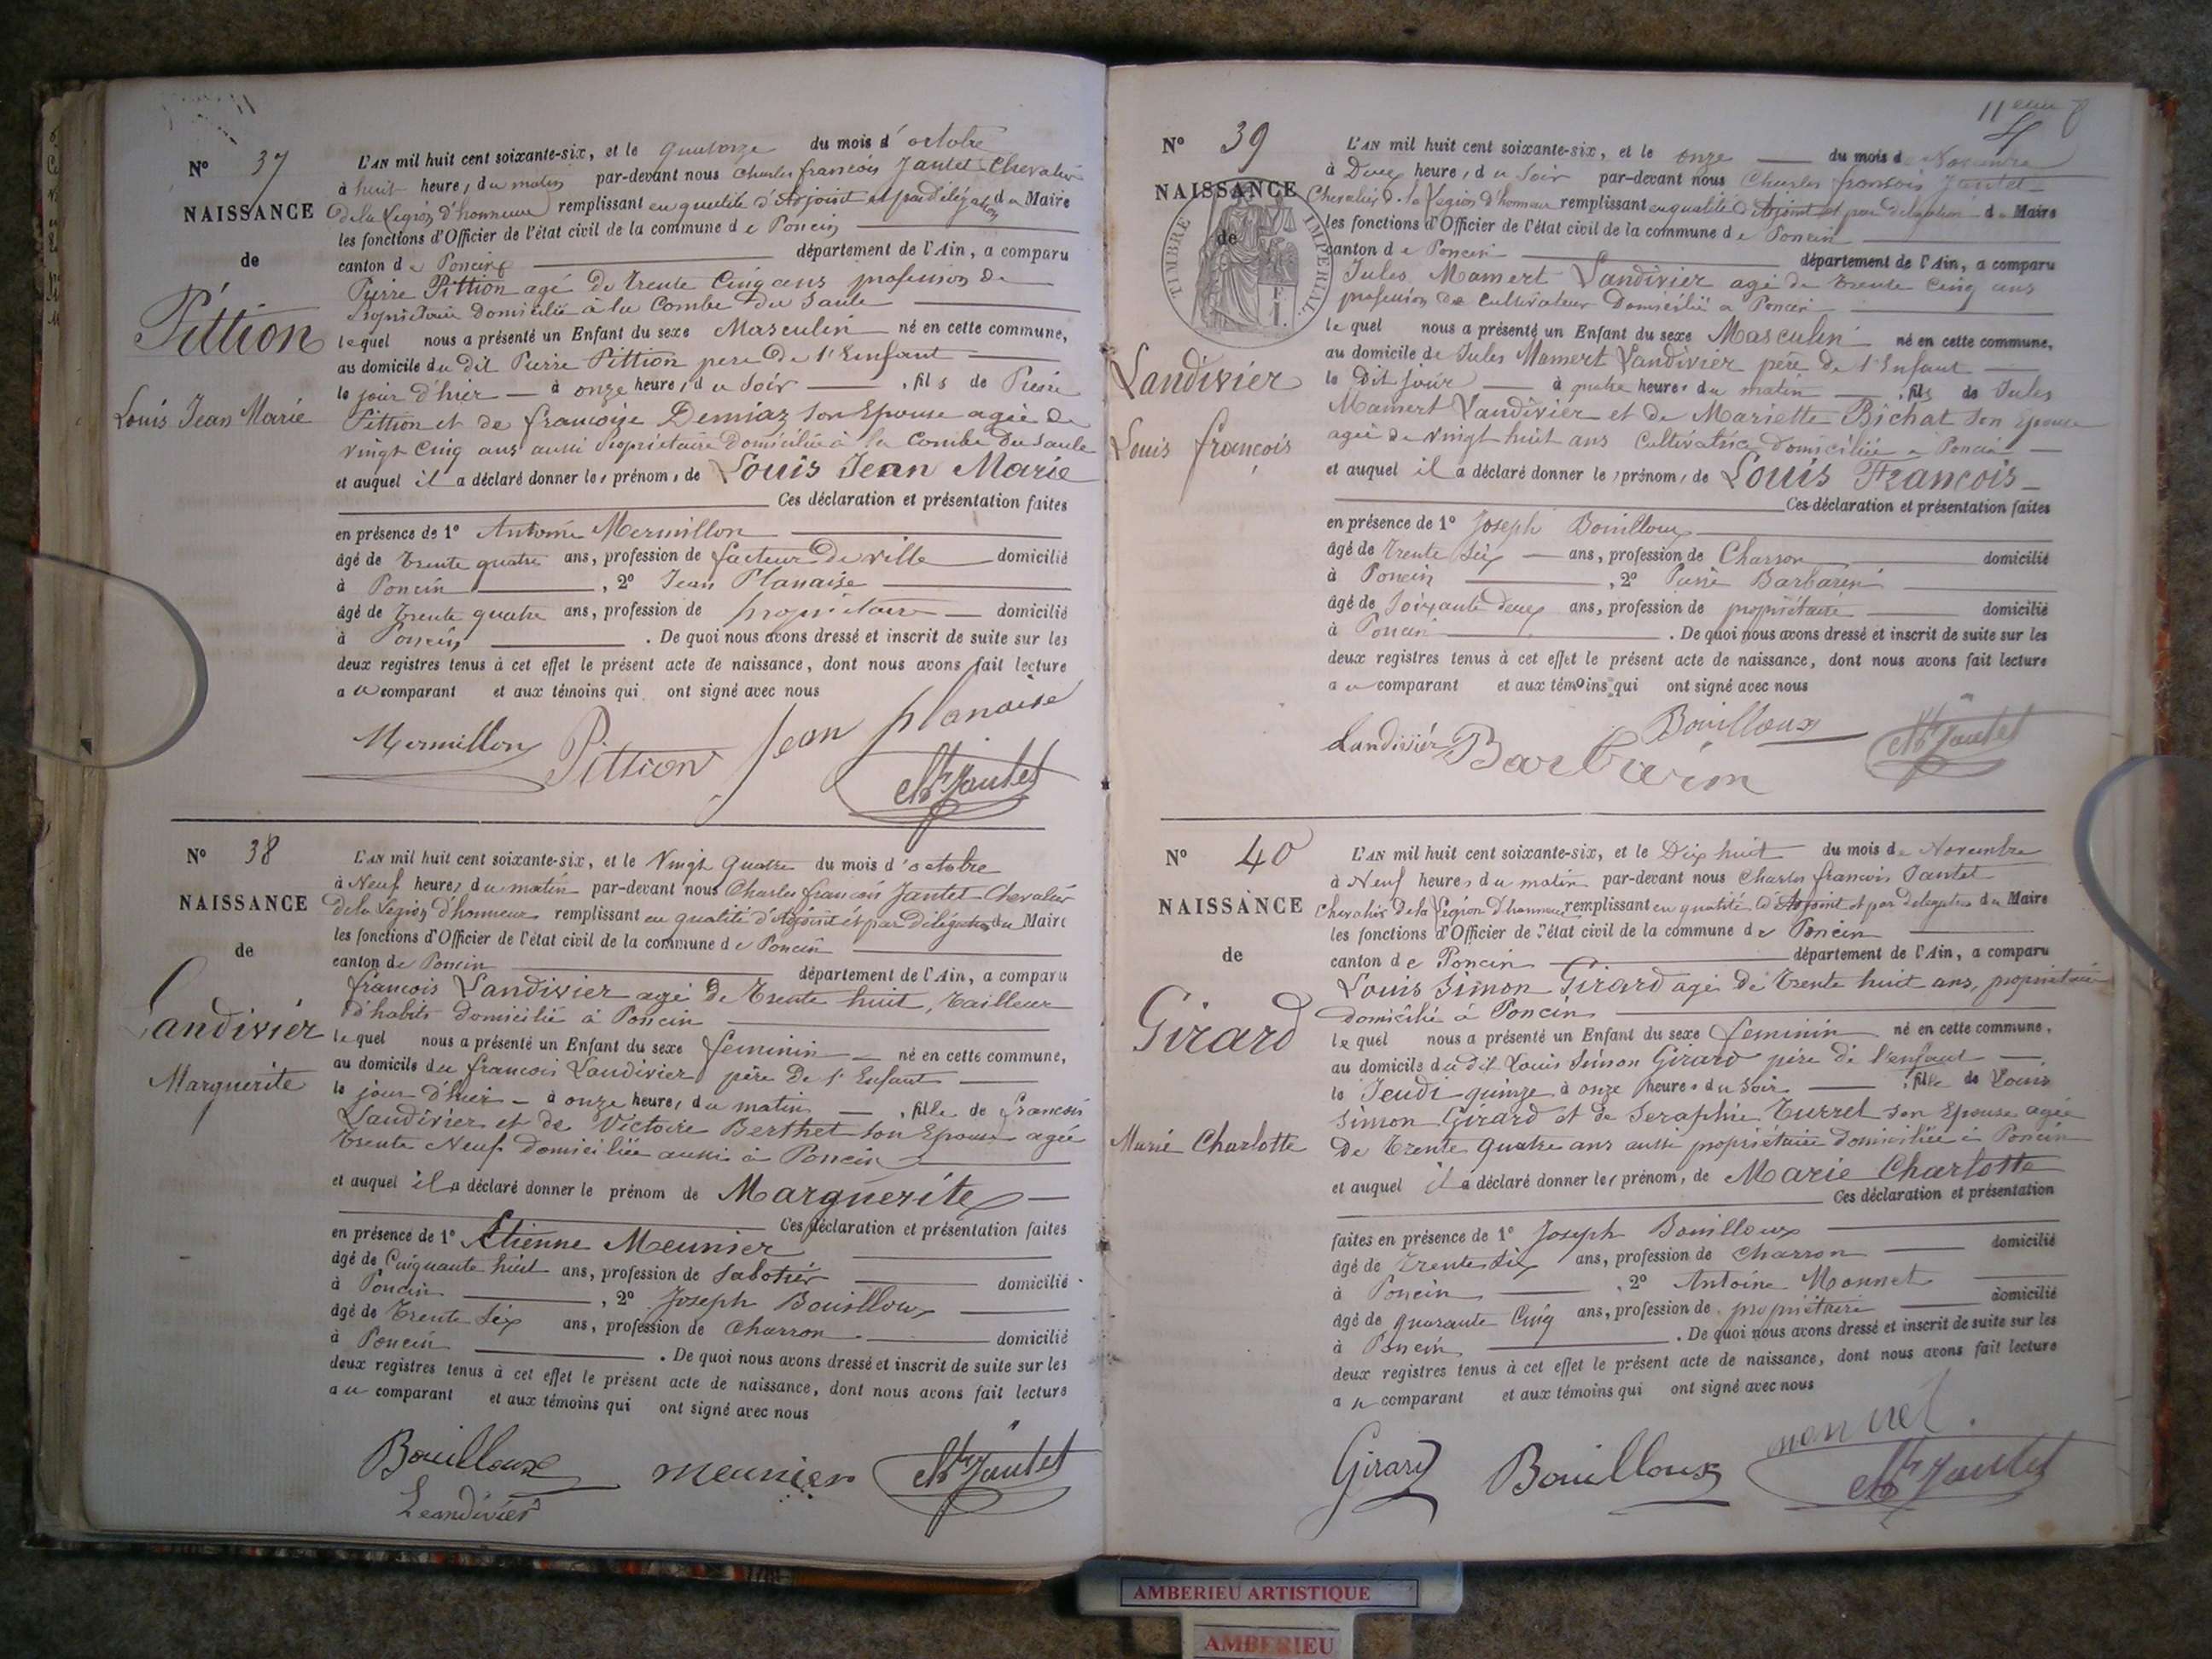 N° 37
NAISSANCE
de
Pittion
Louis Jean Marie
L'AN mil huit cent soixante-six, et le quatorze du mois d'octobre
à huit heures du matin par-devant nous Charles françois Jantet Chevalier
de la Légion d'honneur remplissant en qualité d'Adjoint et par délégation du Maire
les fonctions d'Officier de l'état civil de la commune de Poncin
canton de Poncin département de l'Ain, a comparu
Pierre Pittion agé de trente cinq ans profession de
Propriétaire domicilié à la Combe du Saule
lequel nous a présenté un Enfant du sexe Masculin né en cette commune,
au domicile du dit Pierre Pittion père de l'Enfant
le jour d'hier à onze heures du soir, fils de Pierre
Pittion et de françoise Demiaz son Epouse agée de
vingt cinq ans aussi Propriétaire domiciliée à la Combe du Saule
et auquel il a déclaré donner les prénoms de Louis Jean Marie
Ces déclaration et présentation faites
en présence de 1° Antoine Mermillon
âgé de trente quatre ans, profession de facteur de ville domicilié
à Poncin, 2° Jean Planaise
âgé de trente quatre ans, profession de propriétaire domicilié
à Poncin. De quoi nous avons dressé et inscrit de suite sur les
deux registres tenus à cet effet le présent acte de naissance, dont nous avons fait lecture
au comparant et aux témoins qui ont signé avec nous
Mermillon Pittion Jean planaise
Jantet
N° 38
NAISSANCE
de
Landivier
Marguerite
L'AN mil huit cent soixante-six, et le Vingt Quatre du mois d'octobre
à Neuf heures du matin par-devant nous Charles françois Jantet Chevalier
de la Légion d'honneur remplissant en qualité d'Adjoint et par délégation du Maire
les fonctions d'Officier de l'état civil de la commune de Poncin
canton de Poncin département de l'Ain, a comparu
françois Landivier agé de trente huit, tailleur
d'habits domicilié à Poncin
lequel nous a présenté un Enfant du sexe feminin né en cette commune,
au domicile du françois Landivier père de l'Enfant
le jour d'hier à onze heures du matin, fille de françois
Landivier et de Victoire Berthet son Epouse agée
trente Neuf domiciliée aussi à Poncin
et auquel il a déclaré donner le prénom de Marguerite
Ces déclaration et présentation faites
en présence de 1° Etienne Meunier
âgé de Cinquante huit ans, profession de Sabotier domicilié
à Poncin, 2° Joseph Bouilloux
âgé de trente Six ans, profession de Charron domicilié
à Poncin. De quoi nous avons dressé et inscrit de suite sur les
deux registres tenus à cet effet le présent acte de naissance, dont nous avons fait lecture
au comparant et aux témoins qui ont signé avec nous
Bouilloux meunier Jantet
Landivier
N° 39
NAISSANCE
de
TIMBRE IMPERIAL
Landivier
Louis françois
L'AN mil huit cent soixante-six, et le onze du mois de Novembre
à Deux heures du Soir par-devant nous Charles françois Jantet
Chevalier de la Légion d'honneur remplissant en qualité d'Adjoint et par délégation du Maire
les fonctions d'Officier de l'état civil de la commune de Poncin
canton de Poncin département de l'Ain, a comparu
Jules Mamert Landivier agé de trente cinq ans
profession de Cultivateur Domicilié à Poncin
lequel nous a présenté un Enfant du sexe Masculin né en cette commune,
au domicile de Jules Mamert Landivier père de l'Enfant
le Dit jour à quatre heures du matin, fils de Jules
Mamert Landivier et de Mariette Bichat son Epouse
agée de vingt huit ans Cultivatrice domiciliée à Poncin
et auquel il a déclaré donner les prénoms de Louis François
Ces déclaration et présentation faites
en présence de 1° Joseph Bouilloux
âgé de trente Six ans, profession de Charron domicilié
à Poncin, 2° Pierre Barbarin
âgé de Soixante deux ans, profession de propriétaire domicilié
à Poncin. De quoi nous avons dressé et inscrit de suite sur les
deux registres tenus à cet effet le présent acte de naissance, dont nous avons fait lecture
au comparant et aux témoins qui ont signé avec nous
Landivier Barbarin Bouilloux Jantet
N° 40
NAISSANCE
de
Girard
Marie Charlotte
L'AN mil huit cent soixante-six, et le Dix huit du mois de Novembre
à Neuf heures du matin par-devant nous Charles françois Jantet
Chevalier de la Légion d'honneur remplissant en qualité d'Adjoint et par délégation du Maire
les fonctions d'Officier de l'état civil de la commune de Poncin
canton de Poncin département de l'Ain, a comparu
Louis Simon Girard agé de trente huit ans, propriétaire
domicilié à Poncin
lequel nous a présenté un Enfant du sexe feminin né en cette commune,
au domicile du dit Louis Simon Girard père de l'enfant
le Jeudi quinze à onze heures du soir, fille de Louis
Simon Girard et de Seraphie Turrel son Epouse agée
De trente quatre ans aussi propriétaire domiciliée à Poncin
et auquel il a déclaré donner les prénoms de Marie Charlotte
Ces déclaration et présentation
faites en présence de 1° Joseph Bouilloux
âgé de trente Six ans, profession de Charron domicilié
à Poncin, 2° Antoine Monnet
âgé de quarante Cinq ans, profession de propriétaire domicilié
à Poncin. De quoi nous avons dressé et inscrit de suite sur les
deux registres tenus à cet effet le présent acte de naissance, dont nous avons fait lecture
au comparant et aux témoins qui ont signé avec nous
Girard Bouilloux monnet
Jantet
AMBERIEU ARTISTIQUE
AMBERIEU